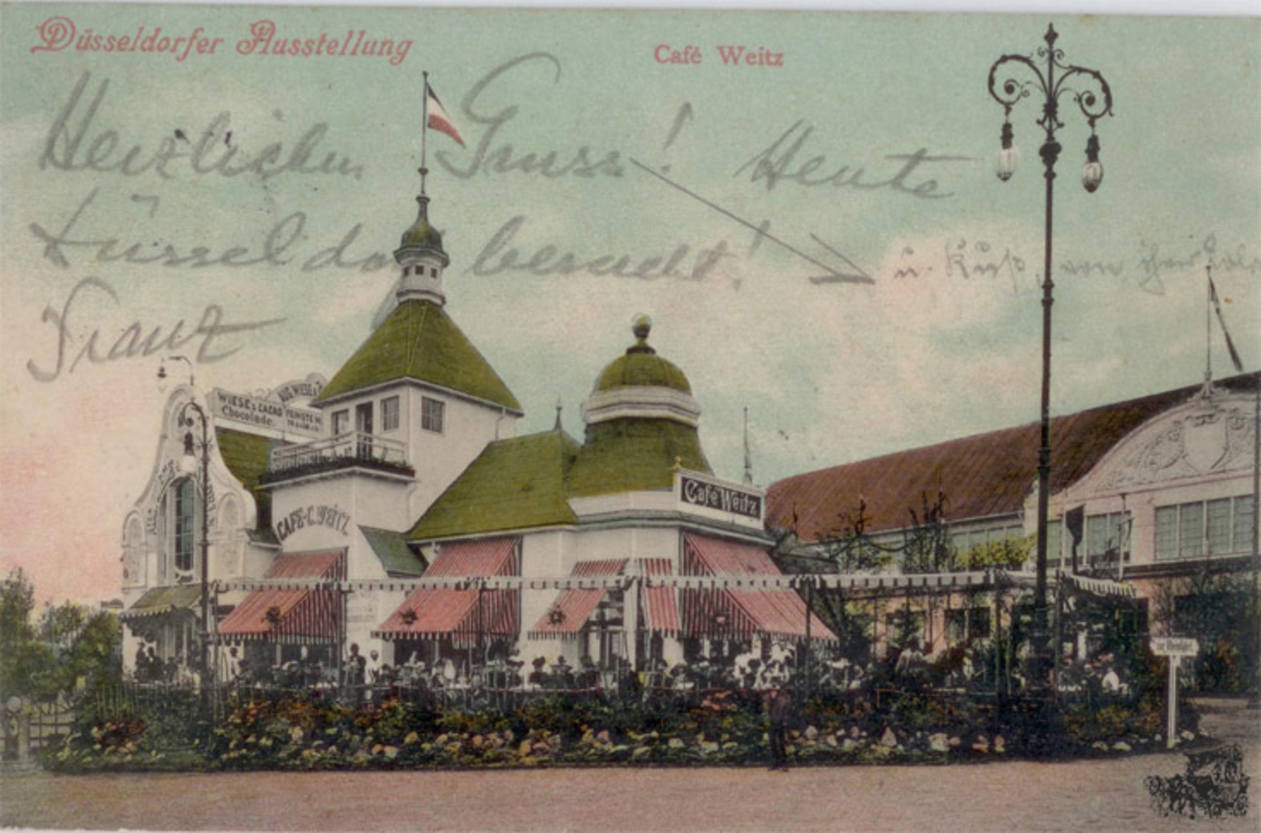 Düsseldorfer Ausstellung
Café Weitz
Herzlichen Gruss! Heute
Düsseldorf besucht!
u. Kuß, von
Franz
WIESE'S CACAO
Chocolade.
CAFÉ C. WEITZ
Café Weitz